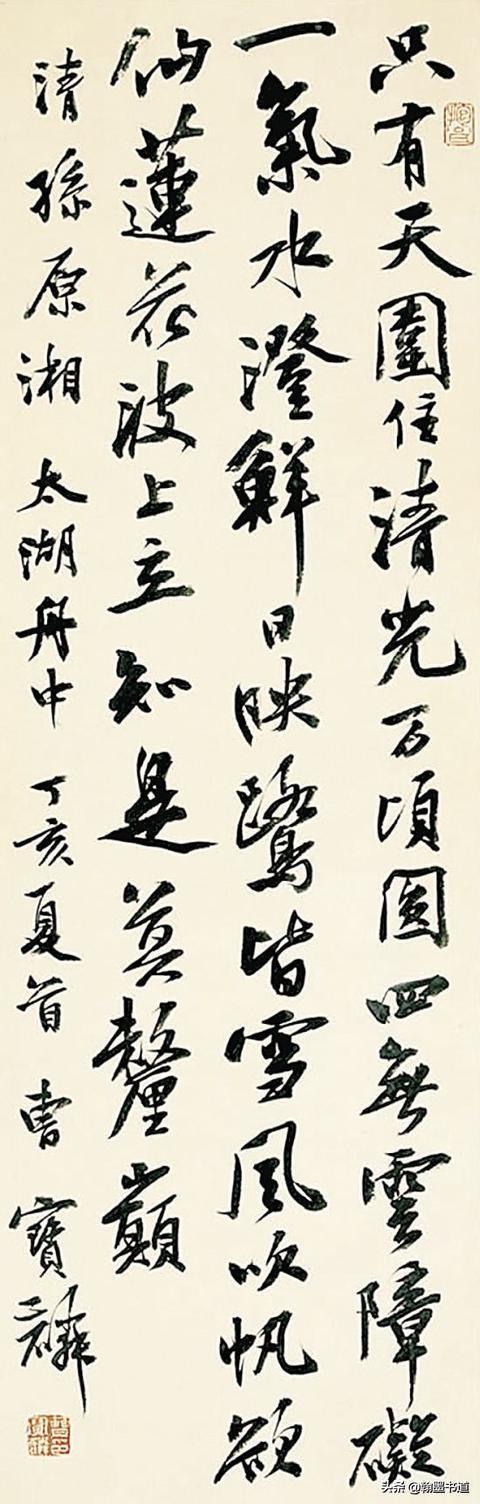 只有天圍住清光万頃圓四無雲障礙
一氣水澄鮮日映鷺皆雪風吹帆欲
仙蓮花波上立知是莫釐巔
清孫原湘 太湖舟中 丁亥夏首 曹寶麟
头条 @翰墨书道